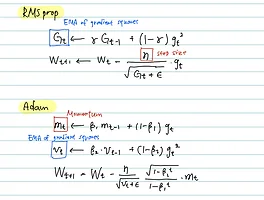 RMSprop
EMA of gradient squares
G_t ← γ G_{t-1} + (1-γ) g_t²
W_{t+1} ← W_t - η / √(G_t + ε) · g_t
step size
Adam
Momentum
m_t ← β₁ m_{t-1} + (1-β₁) g_t
EMA of gradient squares
v_t ← β₂ · v_{t-1} + (1-β₂) g_t²
W_{t+1} ← W_t - η / √(v_t + ε) · √(1-β₂ᵗ) / (1-β₁ᵗ) · m_t